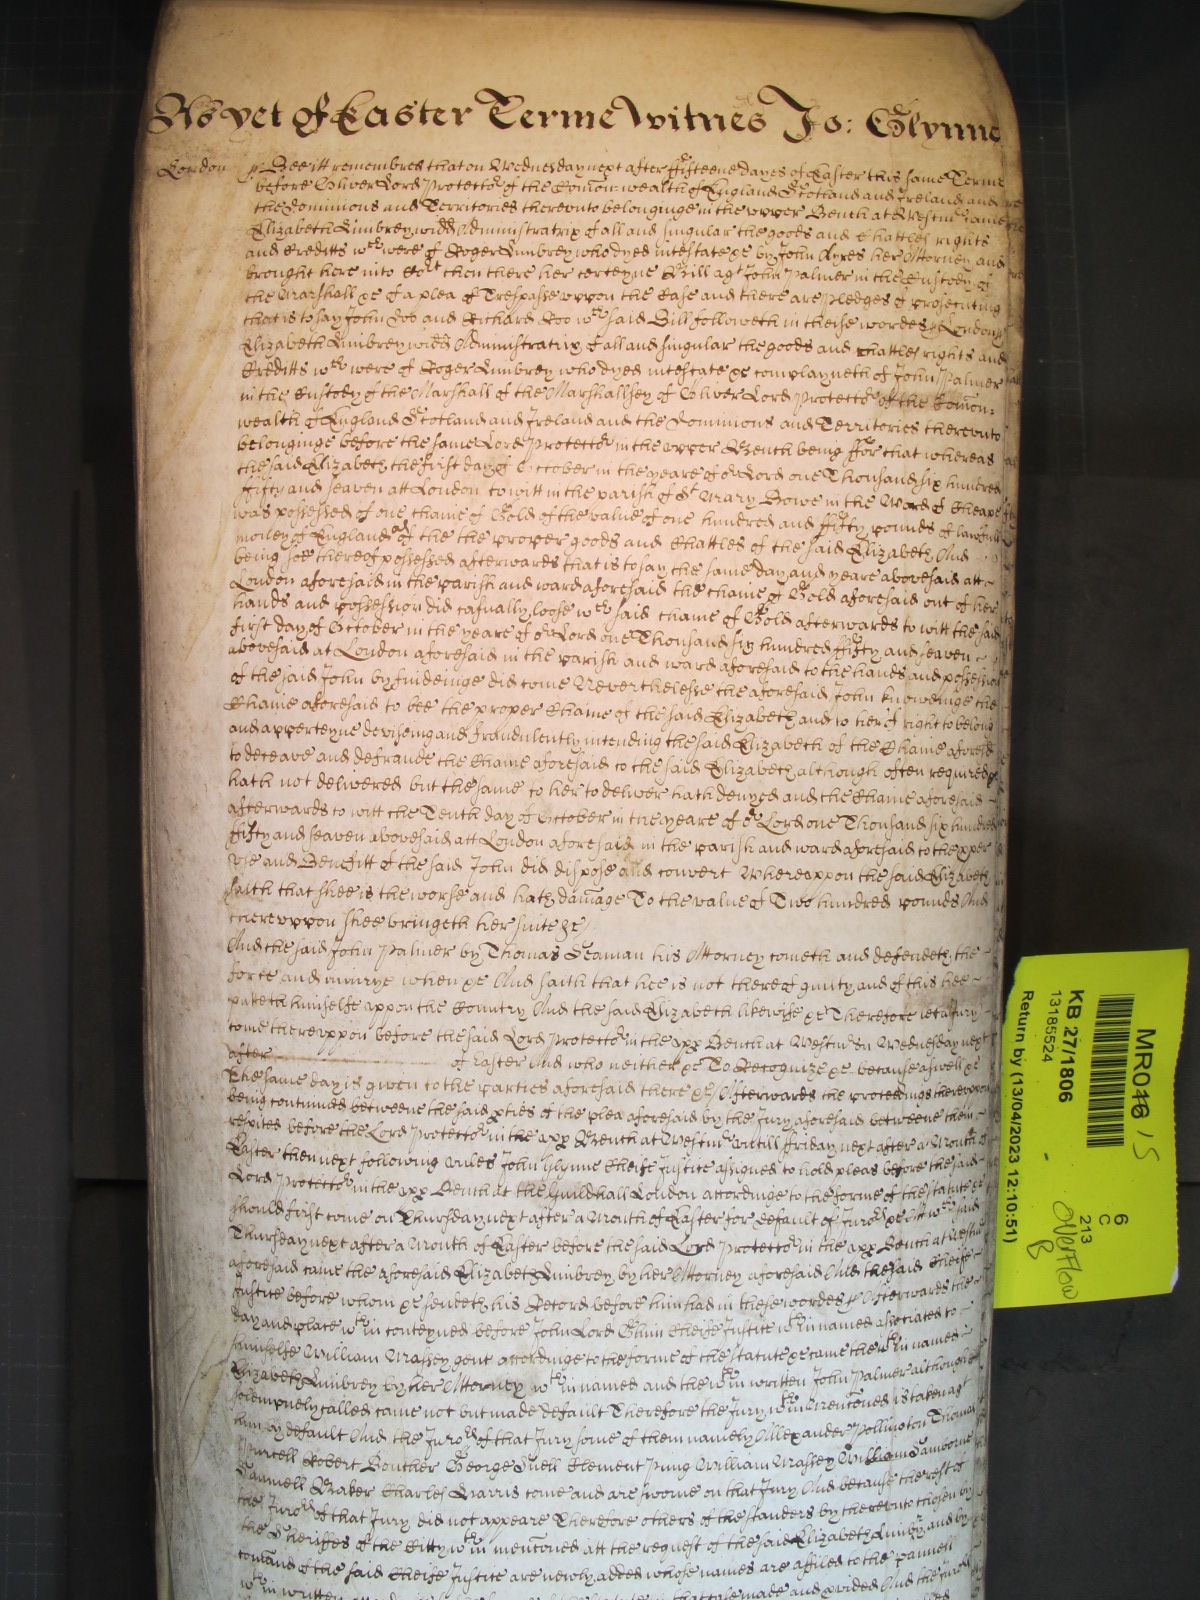 As yet of Easter Terme Witnes Jo: Glynne
London ss Bee itt remembred that on Wednesday next after fifteene dayes of Easter this same Terme
before Oliver Lord Protector of the Comonwealth of England Scotland and Ireland and
the Dominions and Territories therevnto belonginge in the vpper Bench at Westmr came
Elizabeth widd Administratrix of all and singular the goods and Chattles rights
and Creditts wch were of Roger who dyed intestate &c by John Ayres her Attorney and
brought here into Cort then there her certeyne Bill agt John Palmer in the Custody of
the Marshall &c of a plea of Trespasse vppon the Case and there are pledges of prosecuting
that is to say John Doo and Richard Roo wch said Bill followeth in theise wordes ss London ss
Elizabeth widd Administratrix of all and singular the goods and chattles rights and
Creditts wch were of Roger who dyed intestate &c complayneth of John Palmer
in the Custody of the Marshall of the Marshallsey of Oliver Lord Protector of the Comon=
wealth of England Scotland and Ireland and the Dominions and Territories therevnto
belonginge before the same Lord Protector in the vpper Bench being ffor that whereas
the said Elizabeth the first day of October in the yeare of or Lord one Thousand six hundred
fifty and seaven att London to witt in the parish of St Mary Bowe in the Ward of Cheape
was possessed of one chaine of Gold of the value of one hundred and fifty pounds of lawfull
money of England as of the the propper goods and Chattles of the said Elizabeth And
being soe thereof possessed afterwards that is to say the same day and yeare abovesaid att
London aforesaid in the parish and ward aforesaid the chaine of Gold aforesaid out of her
hands and possession did casually loose wch said chaine of Gold afterwards to witt the said
first day of October in the yeare of or Lord one Thousand six hundred fifty and seaven
abovesaid at London aforesaid in the parish and ward aforesaid to the hands and possession
of the said John by findeinge did come Neverthelesse the aforesaid John knoweinge the
Chaine aforesaid to bee the proper Chaine of the said Elizabeth and to her of right to belong
and apperteyne deviseing and fraudulently intending the said Elizabeth of the Chaine aforesd
to deceave and defraude the Chaine aforesaid to the said Elizabeth although often required &c
hath not delivered but the same to her to deliver hath denyed and the Chaine aforesaid
afterwards to witt the Tenth day of October in the yeare of or Lord one Thousand six hundred
fifty and seaven abovesaid att London aforesaid in the parish and ward aforesaid to the pper
vse and Benefitt of the said John did dispose and convert Wherevppon the said Elizabeth
saith that shee is the worse and hath damage To the value of Two hundred pounds And
therevppon shee bringeth her suite &c
And the said John Palmer by Thomas Seaman his Attorney cometh and defendeth the
force and iniurye when &c And saith that hee is not thereof guilty and of this hee
putteth himselfe vppon the Country And the said Elizabeth likewise &c Therefore lett a Jury
come therevppon before the said Lord Protector in the vpp Bench at Westmr on Wednesday next
after of Easter And who neither &c To Recognize &c because aswell &c
The same day is given to the parties aforesaid there &c Afterwards the proceedings therevppon
being continued betweene the said pties of the plea aforesaid by the Jury aforesaid betweene them
respited before the Lord Protector in the vpp Bench at Westmr vntill Friday next after a Month of
Easter then next following vnles John Glynne Cheife Justice assigned to hold pleas before the said
Lord Protector in the vpp Bench at the Guildhall London accordinge to the forme of the statute &c
should first come on Thursday next after a Month of Easter for default of Juror &c Att wch said
Thursday next after a Month of Easter before the said Lord Protector in the vpp Bench at Westmr
aforesaid came the aforesaid Elizabeth by her Attorney aforesaid And the said Cheife
Justice before whom &c sendeth his Record before him had in these wordes ss Afterwards the
day and place wthin conteyned before John Lord Glynn Cheife Justice wthin named associated to
himselfe William Massey gent accordinge to the forme of the statute &c came the wthin named
Elizabeth by her Attorney wthin named and the wthin written John Palmer although
solempnely called came not but made default Therefore the Jury wthin mencioned is taken agt
him by default And the Juror of that Jury some of them namely Allexander Pollington Thomas
Purcell Robert Boucher George Snell Clement Pung William Massey William Samborne
Samuell Baker Charles Harris come and are sworne on that Jury And because the rest of
the Juror of that Jury did not appeare Therefore others of the standers by therevnto chosen by
the Sheriffes of the Citty wthin mencioned att the request of the said Elizabeth and by
comand of the said Cheife Justice are newly added whose names are affiled to the pannell
wthin written made and pvided And the Juror
MR046 15
KB 27/1806
13185524
Return by (13/04/2023 12:10:51)
6
C
213
Overflow
B